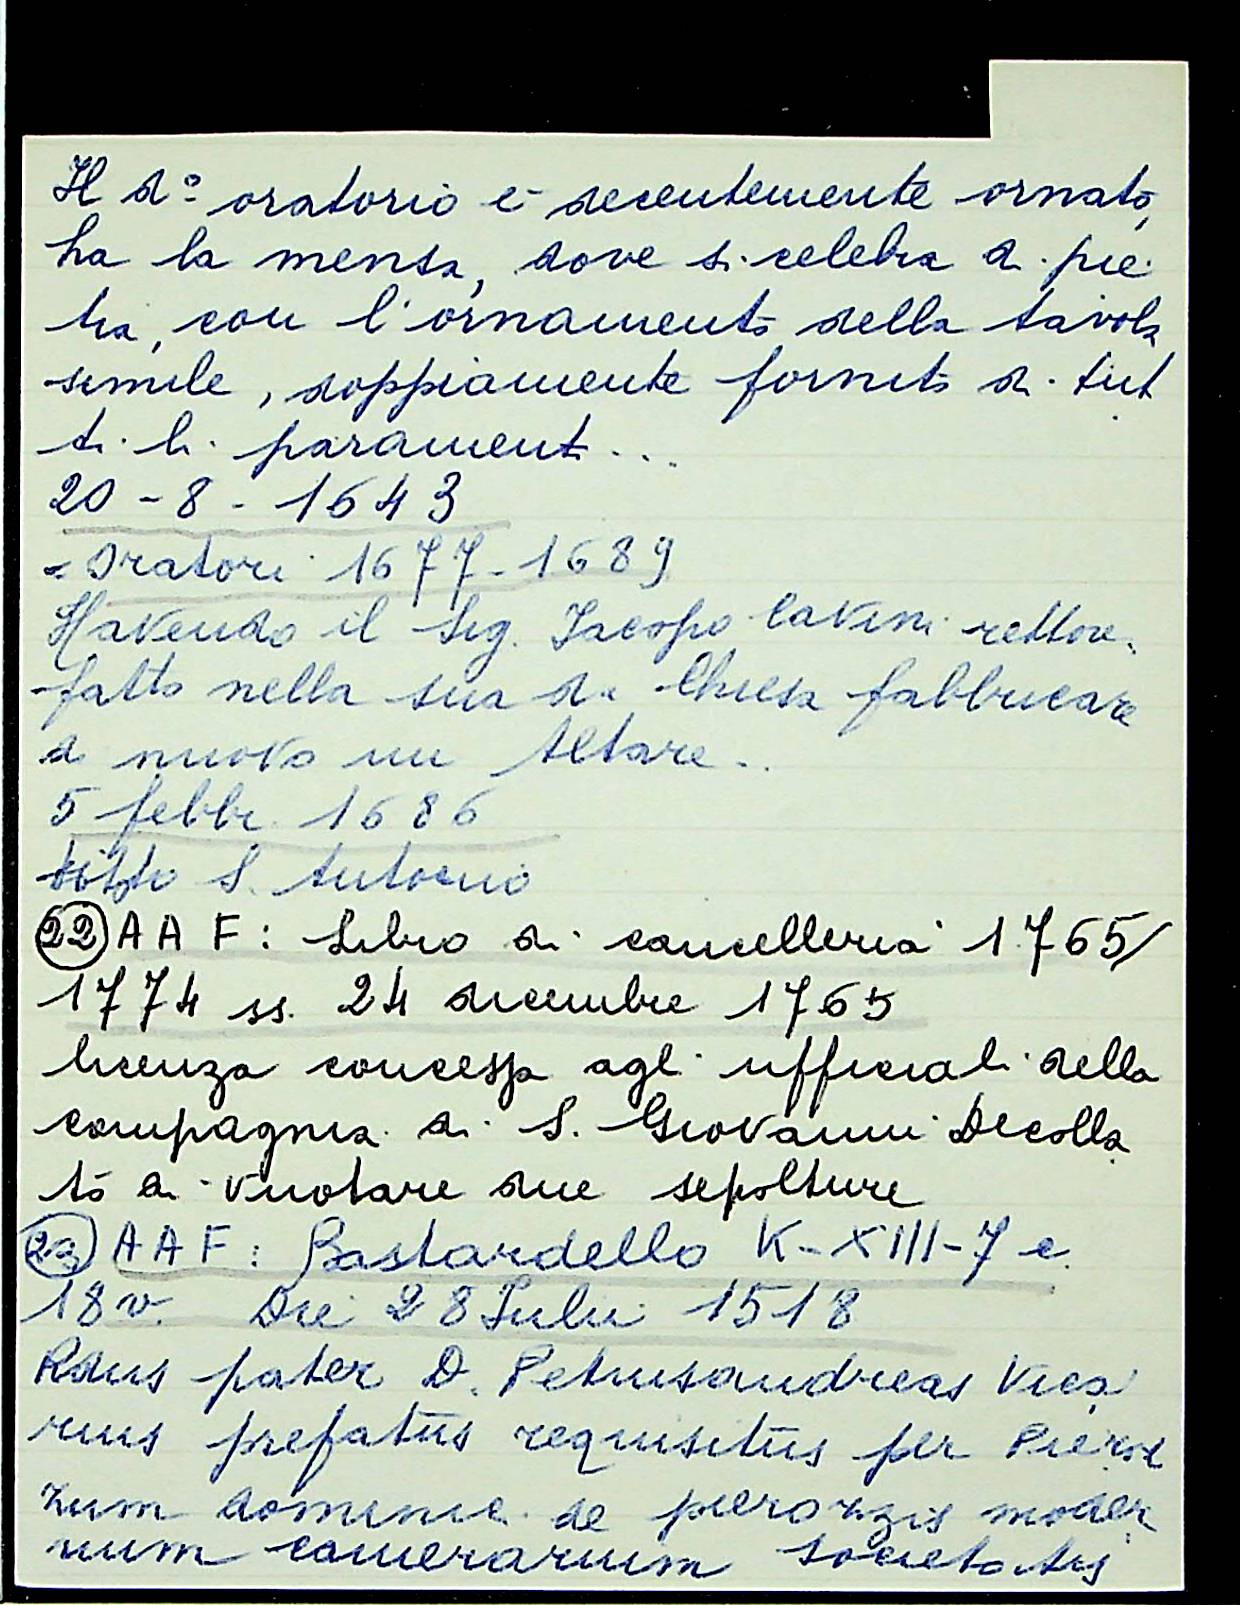 Il d.º oratorio è decentemente ornato,
ha la mensa, dove si celebra di pie
tra, con l'ornamento della tavola
simile, doppiamente fornito di tut
ti li parament...
20-8-1643
= Oratori 1677-1689
Havendo il Sig. Jacopo Cavini rettore
fatto nella sua d.a Chiesa fabbricare
di nuovo un Altare..
5 febbr. 1686
titolo S. Antonio
(22) AAF: Libro di cancelleria 1765/
1774 ss. 24 dicembre 1765
licenza concessa agli ufficiali della
compagnia di S. Giovanni Decolla
to di vuotare due sepolture
(23) AAF: Bastardello K-XIII-7 c.
18v. Die 28 Iulii 1518
Rdus pater D. Petrusandreas Vica
rius prefatus requisitus per
zum dominic de pierozzis moder
num camerarium societatis